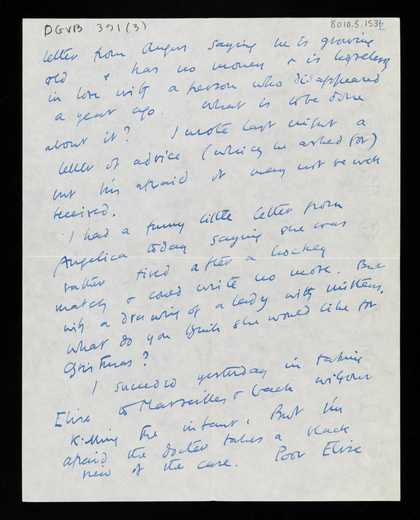 DGVB 391 (3)
8010.5.1536
letter from Angus saying he is growing
old & has no money & is hopelessly
in love with a person who disappeared
a year ago. What is to be done
about it? I wrote last night a
letter of advice (which he asked for)
but I'm afraid it may not be well
received.
I had a funny little letter from
Angelica today saying she was
rather tired after a hockey
match & could write no more. But
with a drawing of a lady with mittens.
What do you think she would like for
Christmas?
I succeeded yesterday in taking
Elise to Marseilles & back without
killing the infant. But I'm
afraid the doctor takes a black
view of the case. Poor Elise